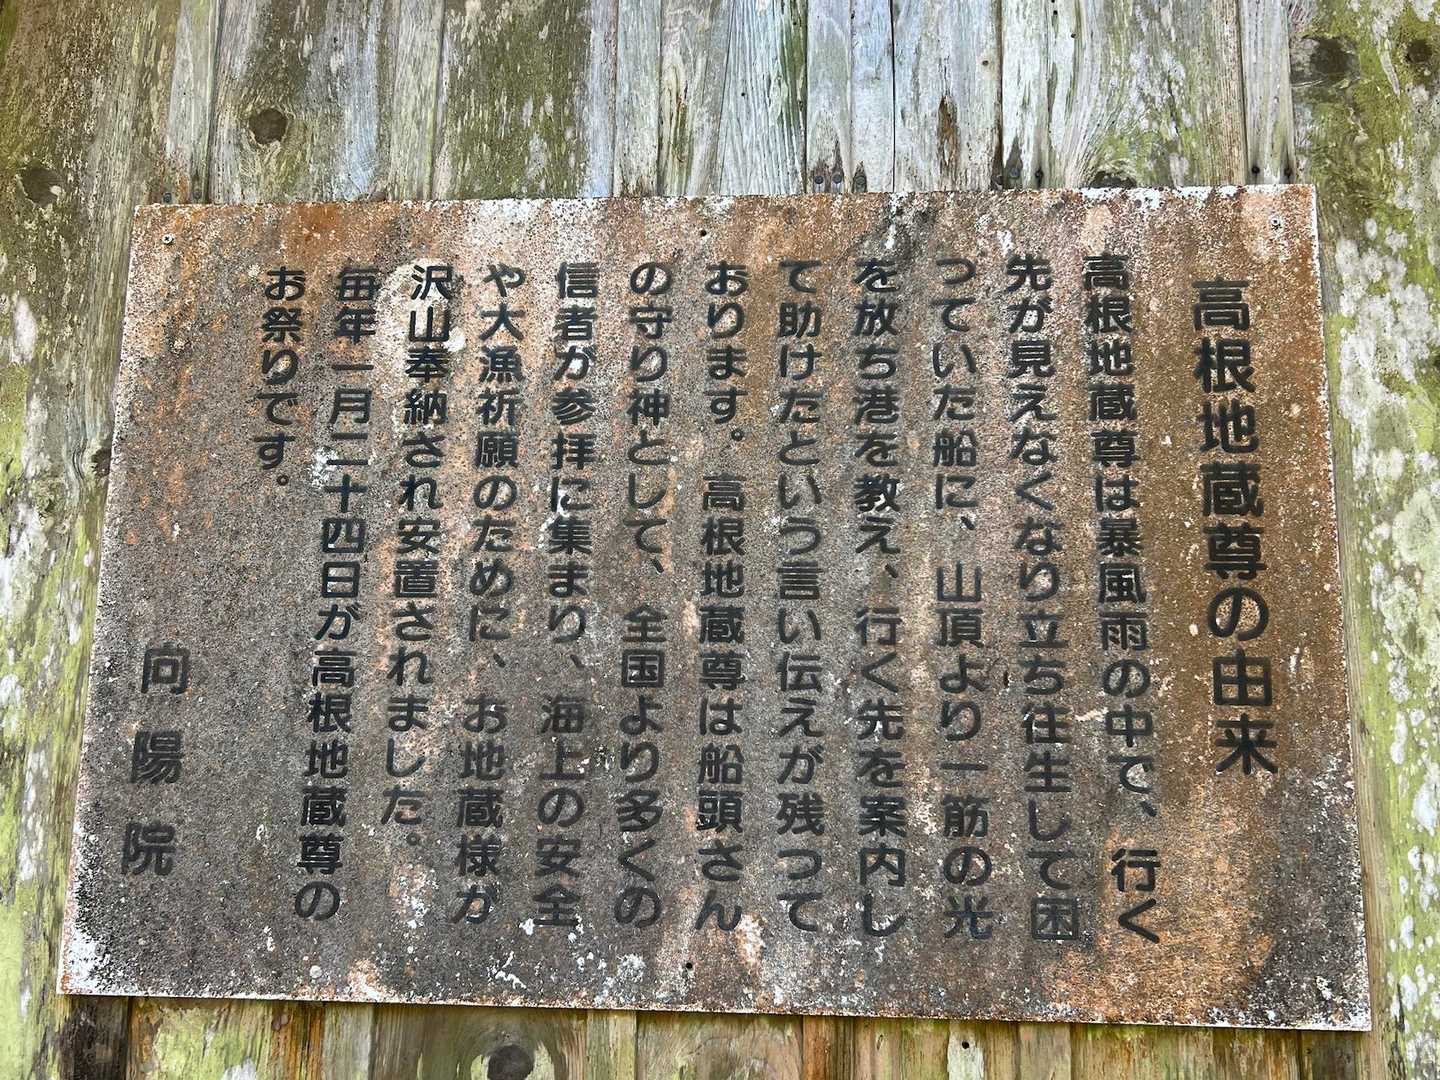 高根地蔵尊の由来
高根地蔵尊は暴風雨の中で、行く
先が見えなくなり立ち往生して困
っていた船に、山頂より一筋の光
を放ち港を教え、行く先を案内し
て助けたという言い伝えが残って
おります。高根地蔵尊は船頭さん
の守り神として、全国より多くの
信者が参拝に集まり、海上の安全
や大漁祈願のために、お地蔵様が
沢山奉納され安置されました。
毎年一月二十四日が高根地蔵尊の
お祭りです。
向陽院